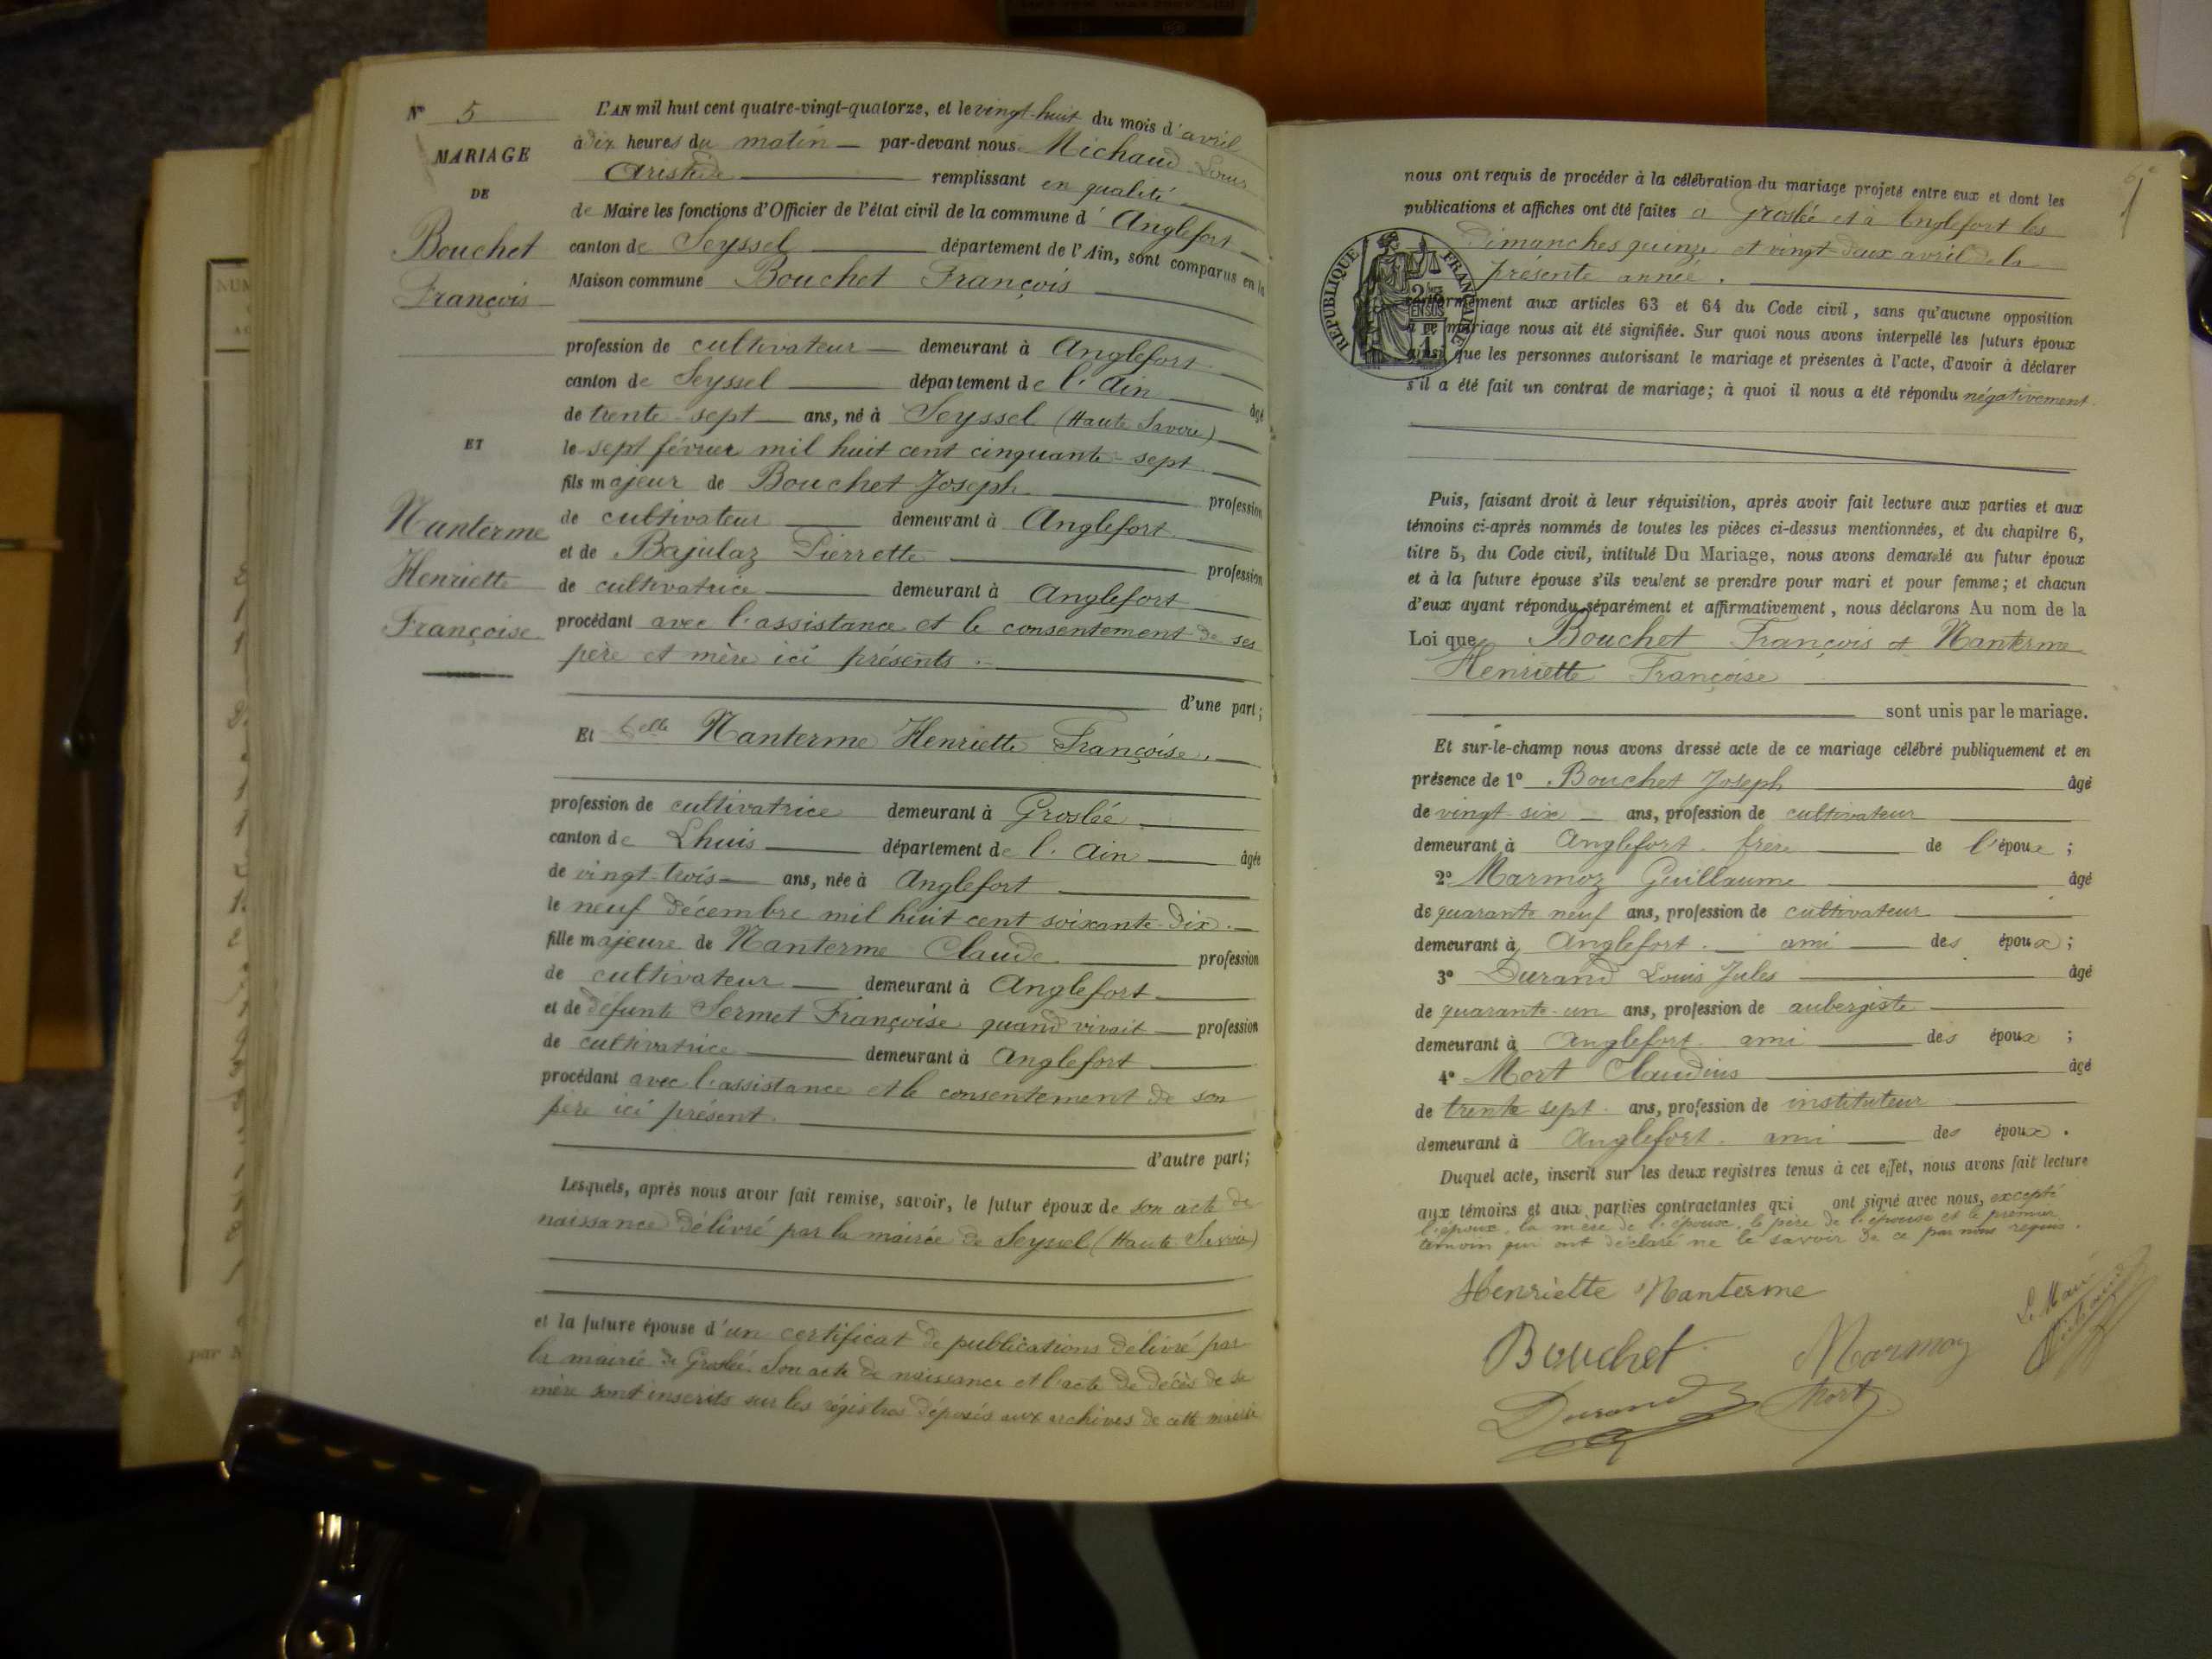 N° 5
MARIAGE
DE
Bouchet
François
ET
Nanterme
Henriette
Françoise
L'AN mil huit cent quatre-vingt-quatorze, et le vingt-huit du mois d'avril
à dix heures du matin par-devant nous Michaud Louis
Aristide remplissant en qualité
de Maire les fonctions d'Officier de l'état civil de la commune d'Anglefort
canton de Seyssel département de l'Ain, sont comparus en la
Maison commune Bouchet François
profession de cultivateur demeurant à Anglefort
canton de Seyssel département de l'Ain âgé
de trente-sept ans, né à Seyssel (Haute Savoie)
le sept février mil huit cent cinquante-sept
fils majeur de Bouchet Joseph profession
de cultivateur demeurant à Anglefort
et de Bajulaz Pierrette profession
de cultivatrice demeurant à Anglefort
procédant avec l'assistance et le consentement de ses
père et mère ici présents.
d'une part;
Et delle Nanterme Henriette Françoise.
profession de cultivatrice demeurant à Groslée
canton de Lhuis département de l'Ain âgée
de vingt-trois ans, née à Anglefort
le neuf décembre mil huit cent soixante-dix.
fille majeure de Nanterme Claude profession
de cultivateur demeurant à Anglefort
et de défunte Sermet Françoise quand vivait profession
de cultivatrice demeurant à Anglefort
procédant avec l'assistance et le consentement de son
père ici présent.
d'autre part;
Lesquels, après nous avoir fait remise, savoir, le futur époux de son acte de
naissance délivré par la mairie de Seyssel (Haute Savoie)
et la future épouse d'un certificat de publications délivré par
la mairie de Groslée. Son acte de naissance et l'acte de décès de sa
mère sont inscrits sur les régistres déposés aux archives de cette mairie
nous ont requis de procéder à la célébration du mariage projeté entre eux et dont les
publications et affiches ont été faites à Groslée et à Anglefort les
dimanches quinze et vingt-deux avril de la
présente année.
RÉPUBLIQUE FRANÇAISE
conformément aux articles 63 et 64 du Code civil, sans qu'aucune opposition
à ce mariage nous ait été signifiée. Sur quoi nous avons interpellé les futurs époux
ainsi que les personnes autorisant le mariage et présentes à l'acte, d'avoir à déclarer
s'il a été fait un contrat de mariage; à quoi il nous a été répondu négativement.
Puis, faisant droit à leur réquisition, après avoir fait lecture aux parties et aux
témoins ci-après nommés de toutes les pièces ci-dessus mentionnées, et du chapitre 6,
titre 5, du Code civil, intitulé Du Mariage, nous avons demandé au futur époux
et à la future épouse s'ils veulent se prendre pour mari et pour femme; et chacun
d'eux ayant répondu séparément et affirmativement, nous déclarons Au nom de la
Loi que Bouchet François et Nanterme
Henriette Françoise
sont unis par le mariage.
Et sur-le-champ nous avons dressé acte de ce mariage célébré publiquement et en
présence de 1° Bouchet Joseph âgé
de vingt-six ans, profession de cultivateur
demeurant à Anglefort. frère de l'époux;
2° Marmoz Guillaume âgé
de quarante neuf ans, profession de cultivateur
demeurant à Anglefort. ami des époux;
3° Durand Louis Jules âgé
de quarante-un ans, profession de aubergiste
demeurant à Anglefort. ami des époux;
4° Mort Claudius âgé
de trente sept. ans, profession de instituteur
demeurant à Anglefort. ami des époux.
Duquel acte, inscrit sur les deux registres tenus à cet effet, nous avons fait lecture
aux témoins et aux parties contractantes qui ont signé avec nous, excepté
l'époux, la mère de l'époux, le père de l'épouse et le premier
témoin qui ont déclaré ne le savoir de ce par nous requis.
Henriette Nanterme
Le Maire
Michaud
Bouchet Marmoz
Durand Mort